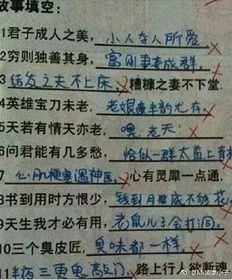 故事填空:
1君子成人之美,小人夺人所爱
2穷则独善其身,富则妻妾成群.
3结发之夫不上床,糟糠之妻不下堂.
4英雄宝刀未老,老娘风韵尤存.
5天若有情天亦老,嘿.老天!
6问君能有几多愁,恰似一群太监上青楼
7心肌梗塞遇神医,心有灵犀一点通.
8书到用时方恨少,钱到月底不够花
9天生我才必有用,老鼠儿子会打洞.
10三个臭皮匠,臭味都一样.
11半夜三更鬼敲门,路上行人欲断魂